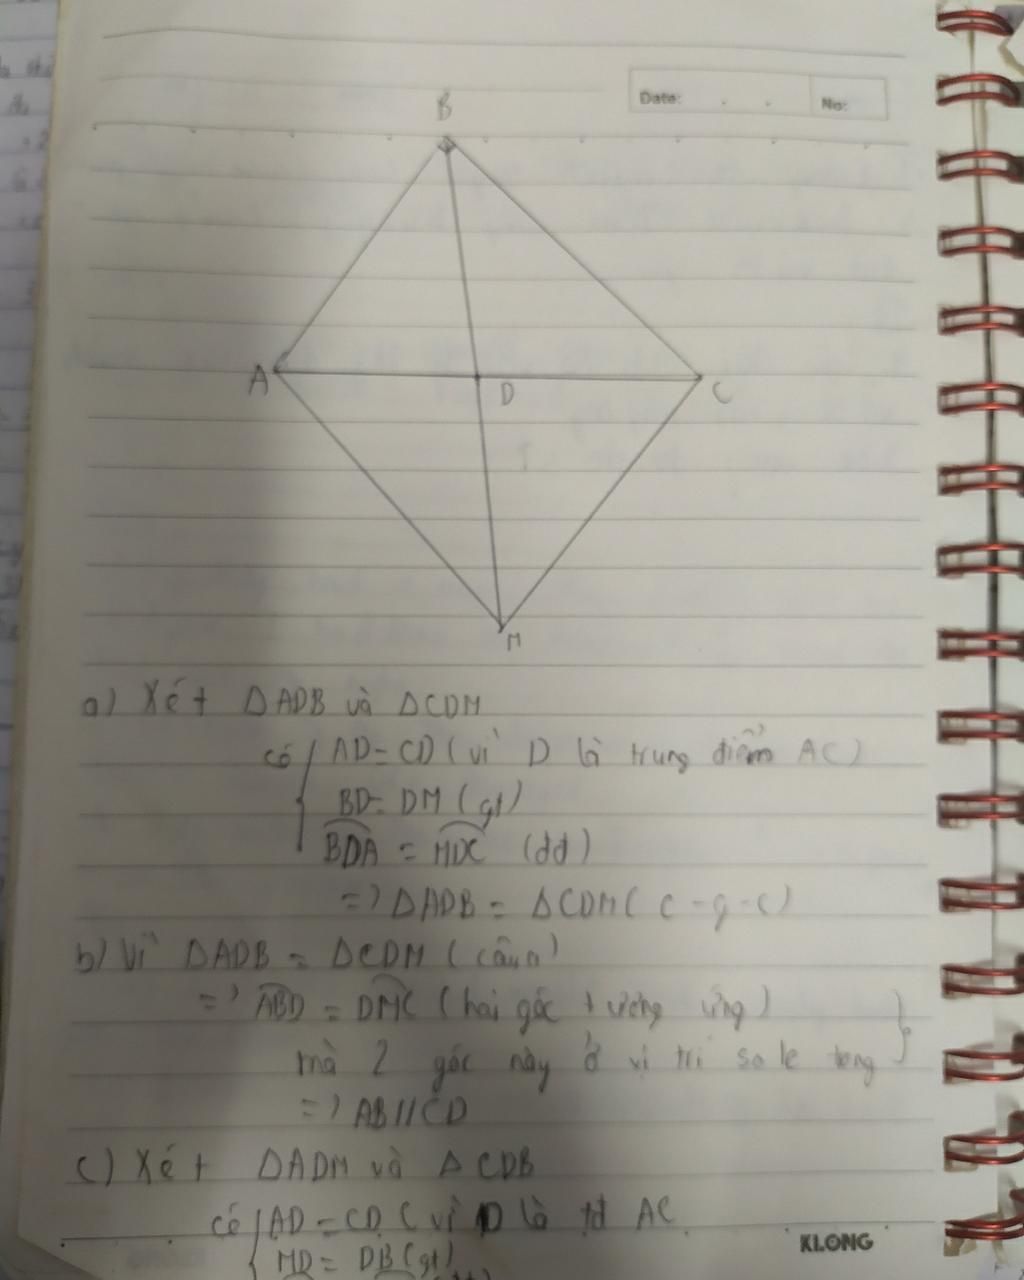 Date:
No:
B
A
D
C
M
a) Xét ΔADB và ΔCDM
có { AD = CD (vì D là trung điểm AC)
BD = DM (gt)
BDA = MDC (đđ)
=) ΔADB = ΔCDM (c-g-c)
b) Vì ΔADB = ΔCDM (câu a)
=) ABD = DMC (hai góc tương ứng) }
mà 2 góc này ở vị trí so le tong
=) AB//CD
c) Xét ΔADM và ΔCDB
có { AD = CD (vì D là tđ AC
KLONG
MD = DB (gt)